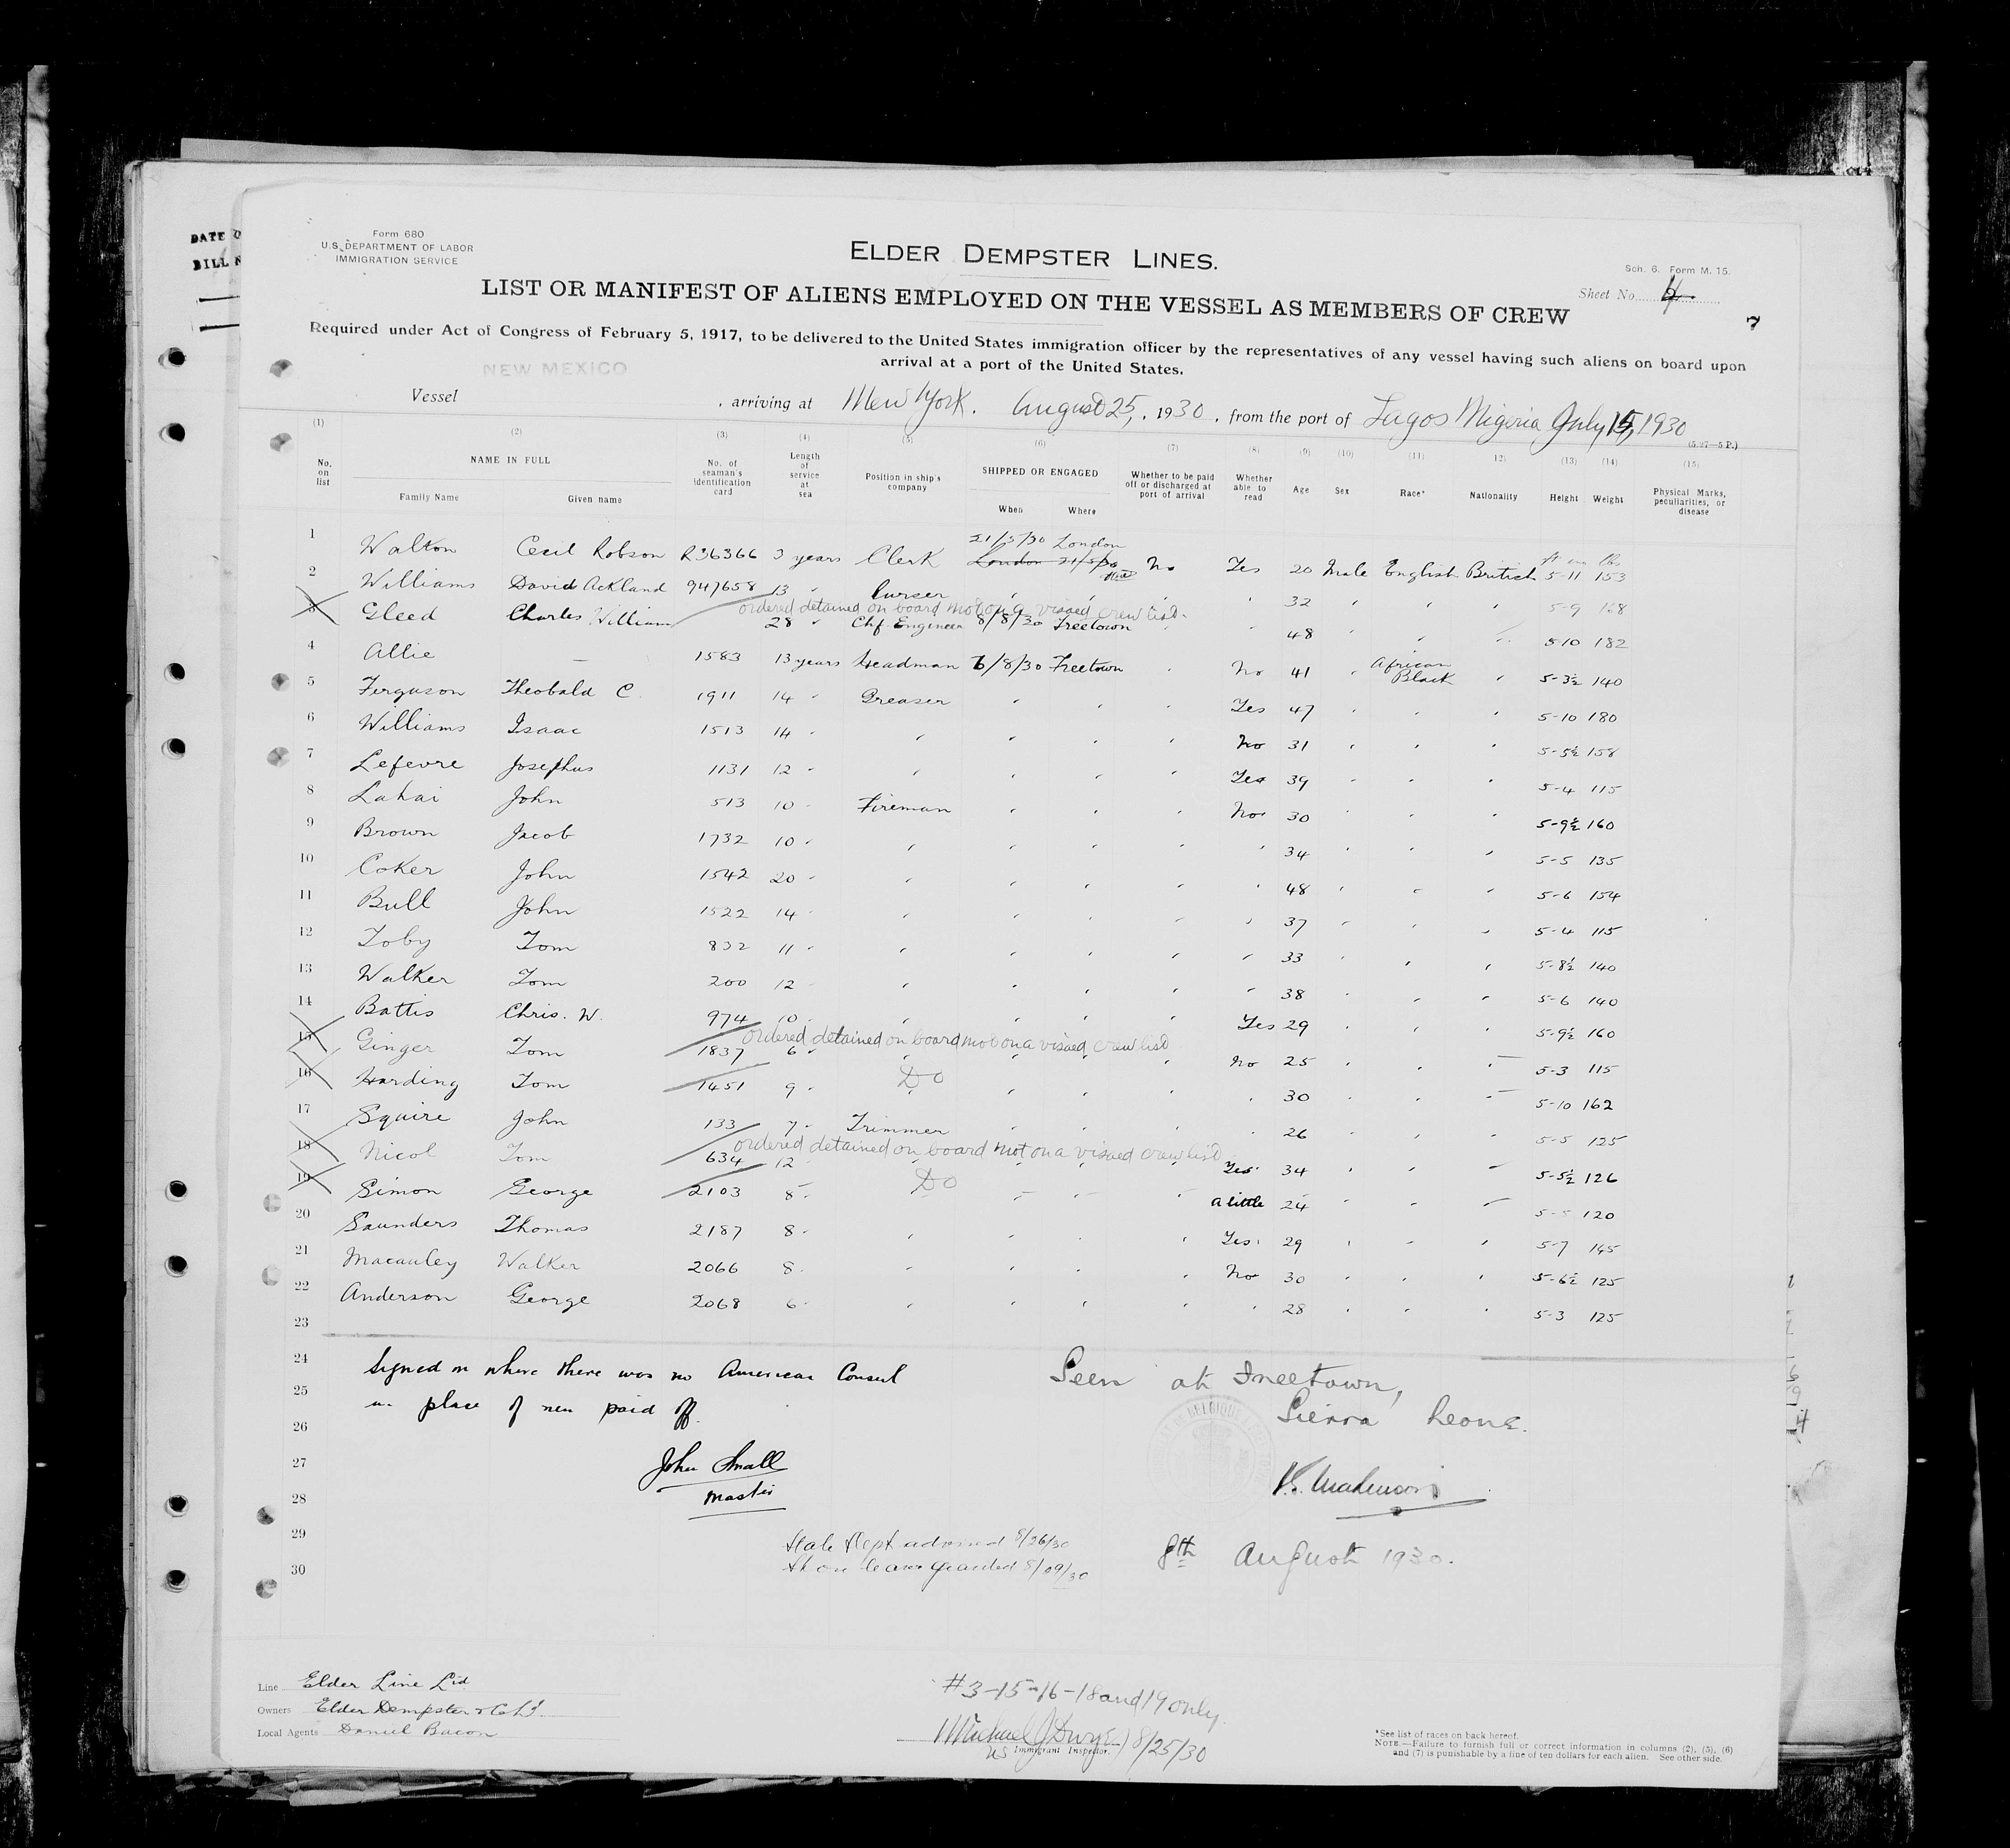 DATE O
BILL N
Form 680
U.S. DEPARTMENT OF LABOR
IMMIGRATION SERVICE
ELDER DEMPSTER LINES.
Sch. 6. Form M. 15.
Sheet No. 4
7
LIST OR MANIFEST OF ALIENS EMPLOYED ON THE VESSEL AS MEMBERS OF CREW
Required under Act of Congress of February 5, 1917, to be delivered to the United States immigration officer by the representatives of any vessel having such aliens on board upon
arrival at a port of the United States.
NEW MEXICO
Vessel , arriving at New York. August 25, , 1930 , from the port of Lagos Nigeria July 15, 1930
(5-27—5 P.)
(1) (2) (3) (4) (5) (6) (7) (8) (9) (10) (11) (12) (13) (14) (15)
No. on list NAME IN FULL Family Name Given name No. of seaman's identification card Length of service at sea Position in ship's company SHIPPED OR ENGAGED When Where Whether to be paid off or discharged at port of arrival Whether able to read Age Sex Race* Nationality Height Weight Physical Marks, peculiarities, or disease
21/5/30 London
ft ins lbs
1 Walton Cecil Robson R36366 3 years Clerk London 21/5/30 No Yes 20 Male English British 5-11 153
2 Williams David Ackland 947658 13 " Purser " " " " 32 " " " 5-9 168
ordered detained on board not on a visaed crew list.
3 Gleed Charles William 28 " Chf. Engineer 8/8/30 Freetown " " 48 " " " 5-10 182
4 Allie — 1583 13 years Headman 6/8/30 Freetown " No 41 " African Black " 5-3½ 140
5 Ferguson Theobald C. 1911 14 " Greaser " " " Yes 47 " " " 5-10 180
6 Williams Isaac 1513 14 " " " " " No 31 " " " 5-5½ 158
7 Lefevre Josephus 1131 12 " " " " " Yes 39 " " " 5-4 115
8 Lahai John 513 10 " Fireman " " " No 30 " " " 5-9½ 160
9 Brown Jacob 1732 10 " " " " " " 34 " " " 5-5 135
10 Coker John 1542 20 " " " " " " 48 " " " 5-6 154
11 Bull John 1522 14 " " " " " " 37 " " " 5-4 115
12 Toby Tom 832 11 " " " " " " 33 " " " 5-8½ 140
13 Walker Tom 200 12 " " " " " " 38 " " " 5-6 140
14 Battis Chris. W. 974 10 " " " " " Yes 29 " " " 5-9½ 160
ordered detained on board not on a visaed crew list
15 Ginger Tom 1837 6 " " " " " No 25 " " " 5-3 115
16 Harding Tom 1451 9 " Do " " " " 30 " " " 5-10 162
17 Squire John 133 7 " Trimmer " " " " 26 " " " 5-5 125
ordered detained on board not on a visaed crew list
18 Nicol Tom 634 12 " " " " " Yes 34 " " " 5-5½ 126
19 Simon George 2103 8 " Do " " " a little 24 " " " 5-5 120
20 Saunders Thomas 2187 8 " " " " " Yes 29 " " " 5-7 145
21 Macauley Walker 2066 8 " " " " " No 30 " " " 5-6½ 125
22 Anderson George 2068 6 " " " " " " 28 " " " 5-3 125
23
24 Signed on where there was no American Consul
25 in place of men paid off.
26
27 John Small
28 Master
29
30
Seen at Freetown,
Sierra Leone.
8th August 1930.
State Dept advised 8/26/30
Shore leave granted 8/29/30
Line Elder Line Ltd
Owners Elder Dempster & Co Ld.
Local Agents Daniel Bacon
#3-15-16-18 and 19 only
Michael J Dwyer 8/25/30
US Immigrant Inspector.
*See list of races on back hereof.
NOTE.—Failure to furnish full or correct information in columns (2), (5), (6)
and (7) is punishable by a fine of ten dollars for each alien. See other side.